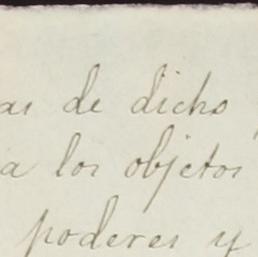 as de dicho
a los objetos
poderes y